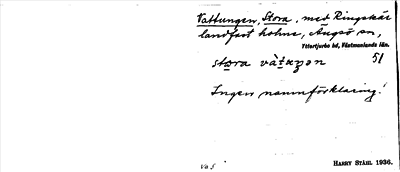 Vattungen, Stora, med Ringskär
landfast holme, Ängsö sn,
Yttertjurbo hd, Västmanlands län.
stora vàtuŋən 51
Ingen namnförklaring!
HARRY STÅHL 1936.